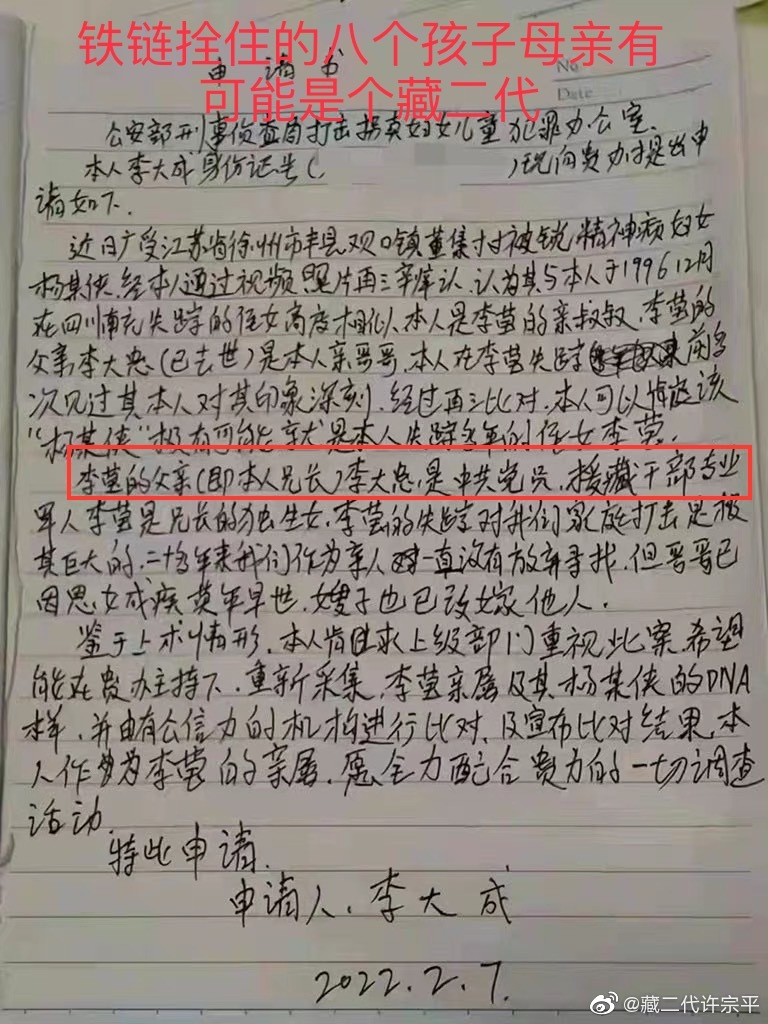 铁链拴住的八个孩子母亲有
可能是个藏二代
申请书
No
Date
公安部刑事侦查局打击拐卖妇女儿童犯罪办公室、
本人李大成身份证号( )现向贵办提出申
请如下、
近日广受江苏省徐州市丰县欢口镇董集村被锁精神病妇女
杨某侠、经本人通过视频照片再三辨认、认为其与本人于1996 12月
在四川南充失踪的侄女高度相似、本人是李莹的亲叔叔、李莹的
父亲李大忠(已去世)是本人亲哥哥、本人在李莹失踪前多
次见过其本人对其印象深刻、经过再三比对、本人可以肯定该
“杨某侠”极有可能就是本人失踪多年的侄女李莹、
李莹的父亲(即本人兄长)李大忠、是中共党员、援藏干部专业
军人李莹是兄长的独生女、李莹的失踪对我们家庭打击是极
其巨大的、二十多年来我们作为亲人一直没有放弃寻找、但哥哥已
因思女成疾英年早世、嫂子也已改嫁他人.
鉴于上术情形、本人肯求上级部门重视此案、希望
能在贵办主持下、重新采集、李莹亲属及其杨某侠的DNA
样、并由有公信力的机构进行比对、及宣布比对结果、本
人作为李莹的亲属、愿全力配合贵办的一切调查
活动、
特此申请、
申请人、李大成
2022.2.7.
@藏二代许宗平